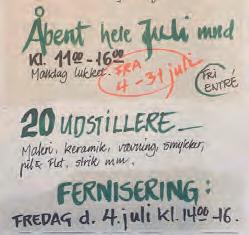 Åbent hele Juli mnd
Kl. 1100-1600
Mandag lukket.
FRA
4-31 juli
FRI
ENTRÉ
20 UDSTILLERE
Maleri, keramik, vævning, smykker,
pil & flet, strik m.m.
FERNISERING:
FREDAG d. 4. juli kl. 1400-16.